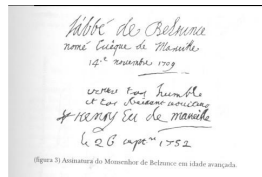 l'abbé de Belsunce
nomé Evêque de Marseille
14.e novembre 1709
votre tres humble
et tres obeissant
+ henry Ev. de marseille
le 26 1752
(figura 3) Assinatura do Monsenhor de Belzunce em idade avançada.